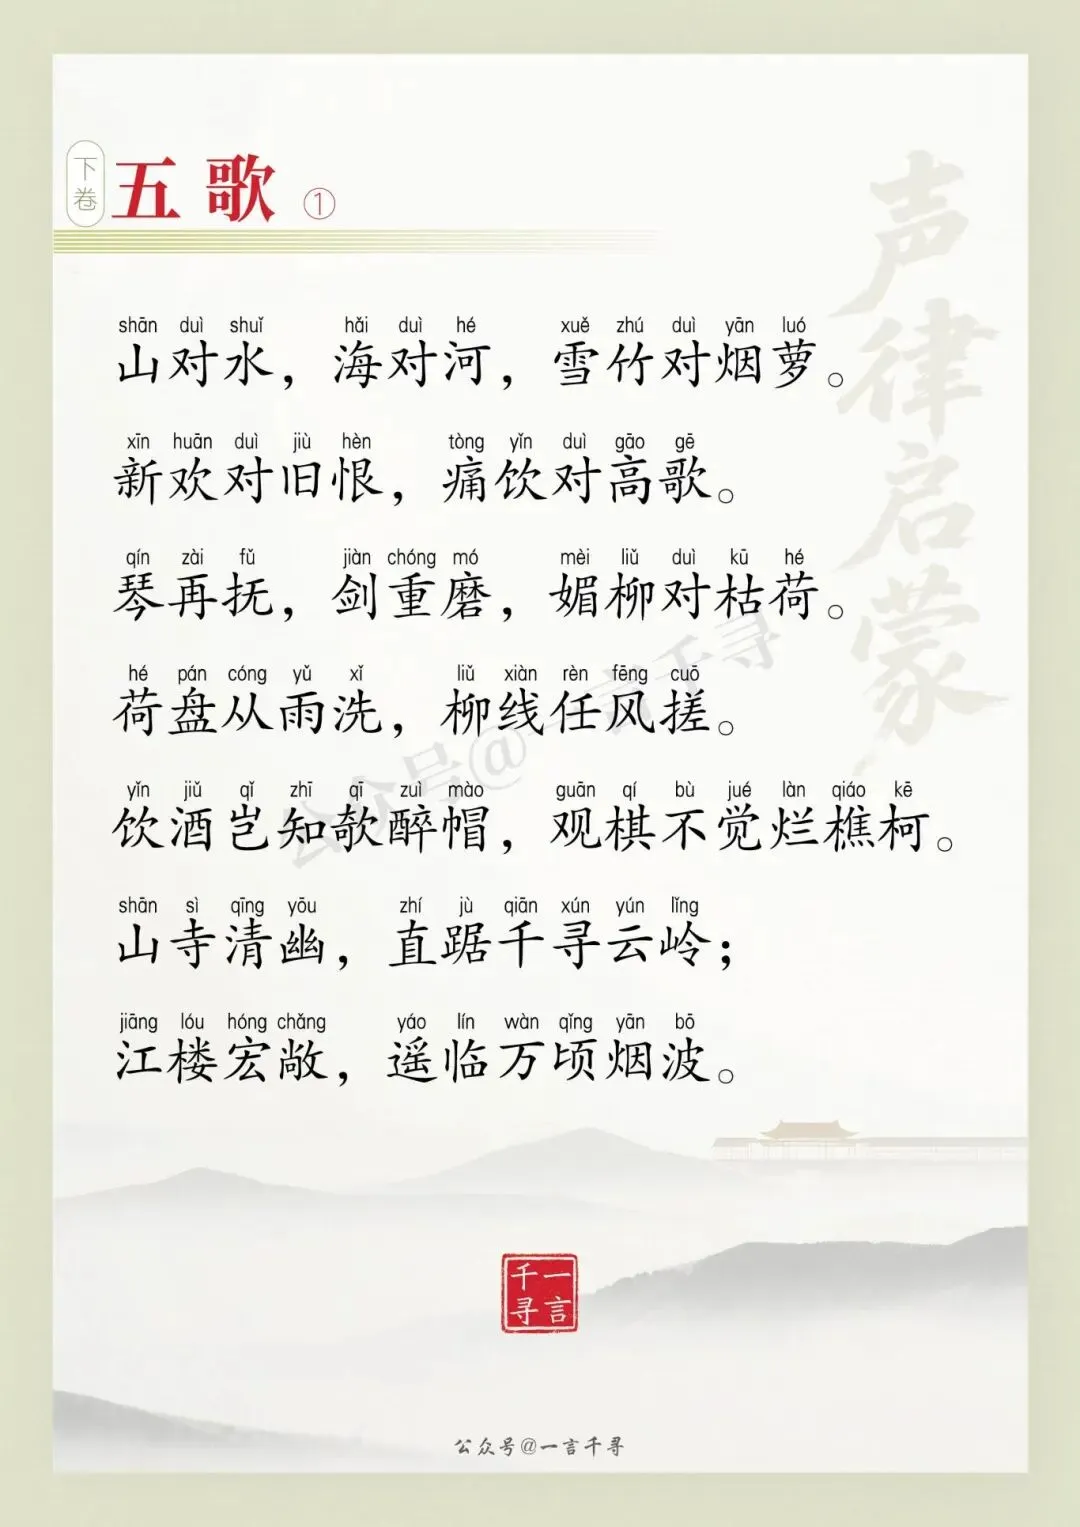 下卷
五歌 ①
声律启蒙
shān duì shuǐ hǎi duì hé xuě zhú duì yān luó
山对水，海对河，雪竹对烟萝。
xīn huān duì jiù hèn tòng yǐn duì gāo gē
新欢对旧恨，痛饮对高歌。
qín zài fǔ jiàn chóng mó mèi liǔ duì kū hé
琴再抚，剑重磨，媚柳对枯荷。
hé pán cóng yǔ xǐ liǔ xiàn rèn fēng cuō
荷盘从雨洗，柳线任风搓。
yǐn jiǔ qǐ zhī qī zuì mào guān qí bù jué làn qiáo kē
饮酒岂知欹醉帽，观棋不觉烂樵柯。
shān sì qīng yōu zhí jù qiān xún yún lǐng
山寺清幽，直踞千寻云岭；
jiāng lóu hóng chǎng yáo lín wàn qǐng yān bō
江楼宏敞，遥临万顷烟波。
公众号@一言千寻
一言千寻
公众号@一言千寻